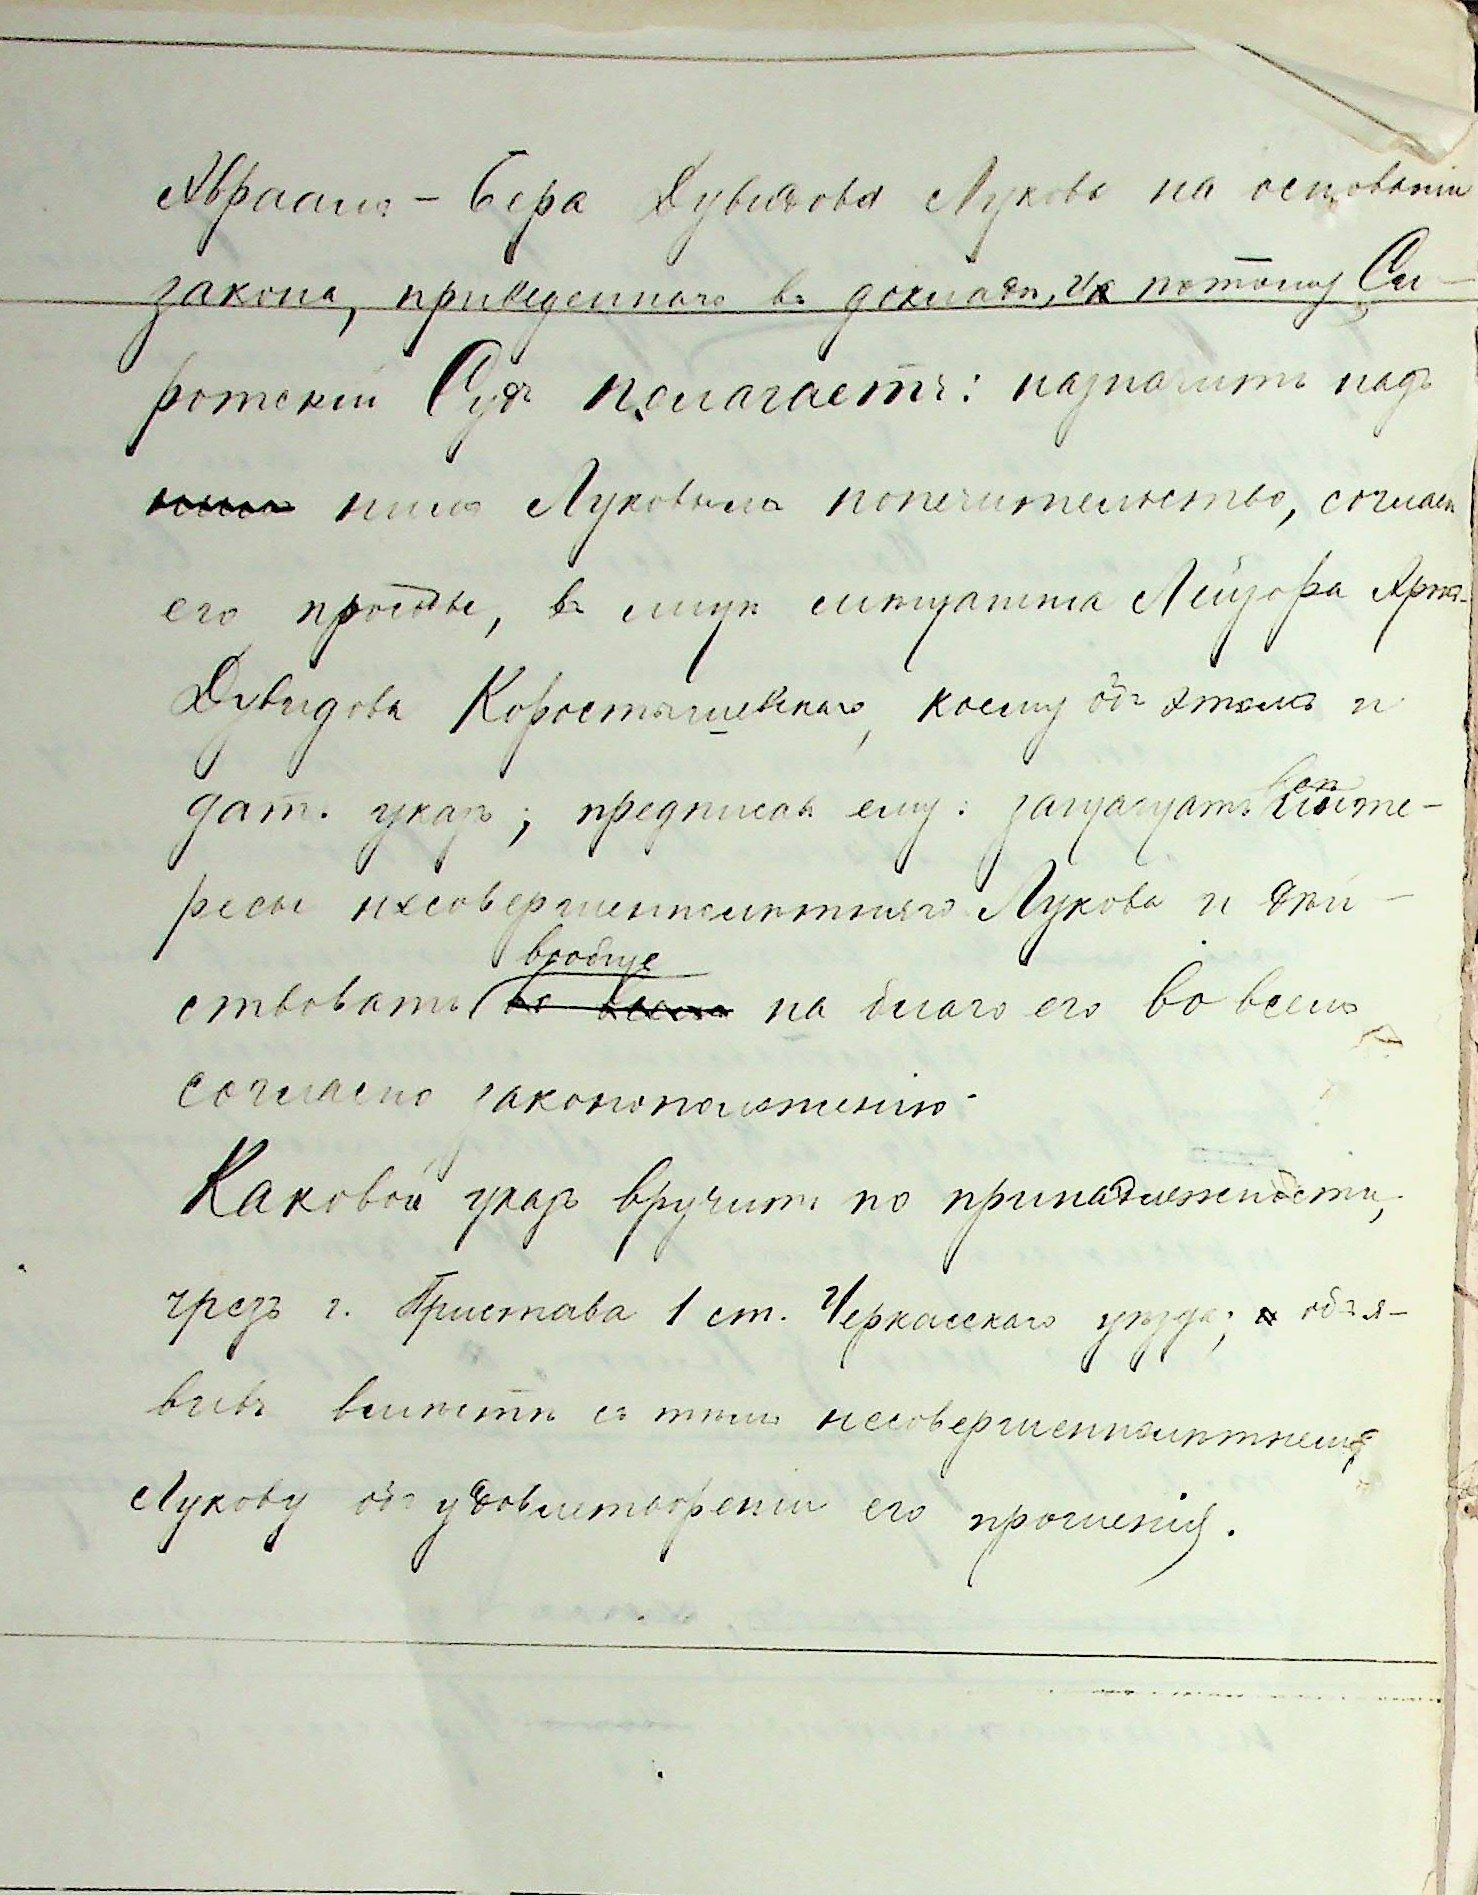 Авраамъ-Бера Дувидова Лукова на основаніи
закона, приведеннаго въ докладѣ, а потому Си-
ротскій Судъ полагаетъ: назначить надъ
нимъ Луковымъ попечительство, согласн
его просьбы, въ лицѣ мѣщанина Лейзора Арна-
Дувидова Коростышевскаго, коему объ этомъ и
дать указъ; предписавъ ему: защищать всѣ инте-
ресы несовершеннолѣтняго Лукова и дѣй-
ствовать вообще на благо его во всемъ
согласно законоположенію.
Каковой указъ вручить по принадлежности,
чрезъ г. Пристава 1 ст. Черкасскаго уѣзда; объя-
вивъ вмѣстѣ съ тѣмъ несовершеннолѣтнему
Лукову объ удовлетвореніи его прошенія.